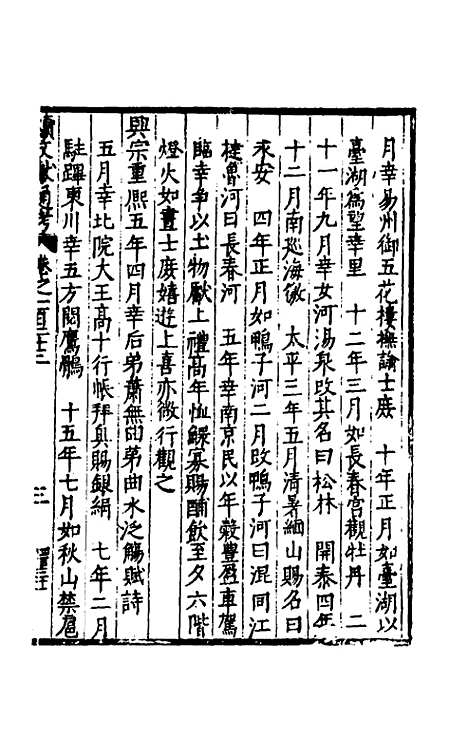 月幸易州御五花樓撫諭士庶　十年正月如臺湖以
臺湖爲望幸里　十二年三月如長春宮觀牡丹　二
十一年九月幸女河湯泉改其名曰松林　開泰四年
十二月南廵海徼　太平三年五月清暑緬山賜名曰
永安　四年正月如鴨子河二月改鴨子河曰混同江
㨗魯河曰長春河　五年幸南京民以年穀豐盈車駕
臨幸争以土物獻上禮高年恤鰥寡賜酺飲至夕六階
燈火如晝士庶嬉遊上喜亦微行觀之
興宗重熙五年四月幸后弟蕭無曲第曲水泛觴賦詩
五月幸北院大王高十行帳拜奥賜銀絹　七年二月
駐蹕東川幸五方閱鷹鶻　十五年七月如秋山禁扈
續文獻通考　卷之一百二十三　三